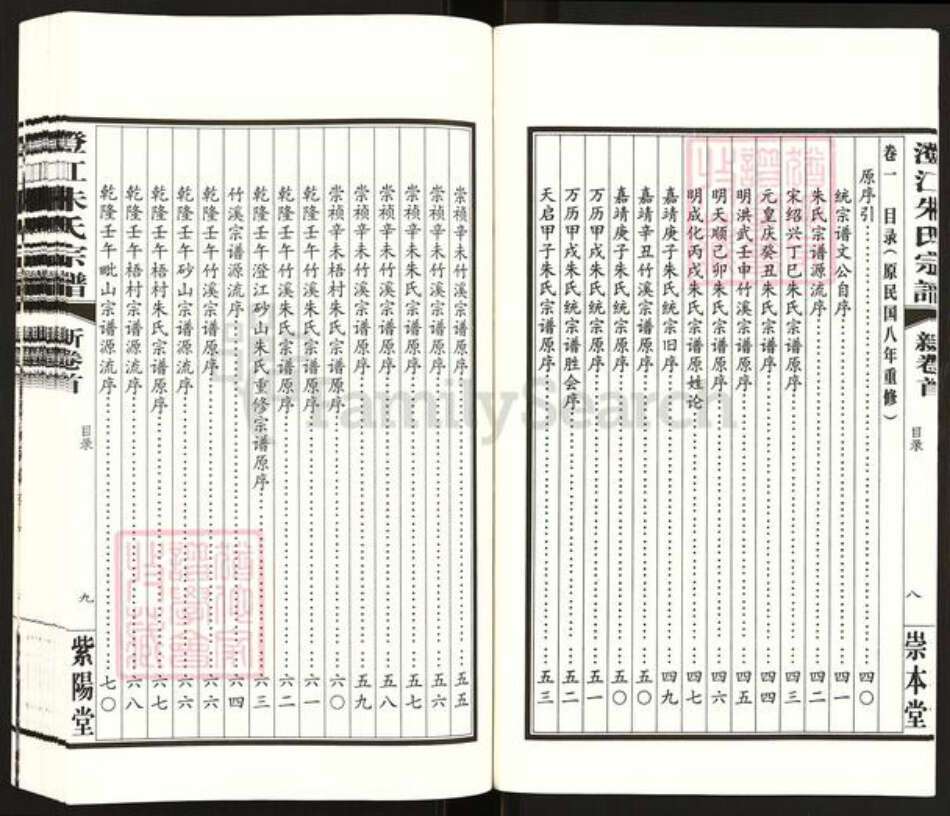 澄江朱氏宗譜
總卷首
目录
八
崇本堂
卷一 目录（原民国八年重修）
原序引 四〇
统宗谱文公自序 四一
朱氏宗谱源流序 四二
宋绍兴丁巳朱氏宗谱原序 四三
元皇庆癸丑朱氏宗谱序 四四
明洪武壬申竹溪宗谱原序 四五
明天顺己卯朱氏宗谱原序 四六
明成化丙戌朱氏宗谱原姓论 四七
嘉靖庚子朱氏统宗旧序 四九
嘉靖辛丑竹溪宗谱原序 五〇
嘉靖庚子朱氏宗谱原序 五〇
万历甲戌朱氏统宗谱原序 五一
万历甲戌朱氏统宗谱胜会序 五二
天启甲子朱氏宗谱原序 五三
崇祯辛未竹溪宗谱原序 五五
崇祯辛未竹溪宗谱原序 五六
崇祯辛未朱氏宗谱原序 五七
崇祯辛未朱氏宗谱原序 五八
崇祯辛未梧村宗谱源流序 五九
崇祯辛未梧村朱氏宗谱原序 六〇
乾隆壬午竹溪朱氏宗谱原序 六一
乾隆壬午竹溪朱氏宗谱原序 六二
乾隆壬午澄江砂山朱氏重修宗谱原序 六三
竹溪宗谱源流序 六四
乾隆壬午竹溪宗谱原序 六六
乾隆壬午砂山宗谱源流序 六六
乾隆壬午梧村朱氏宗谱原序 六七
乾隆壬午梧村宗谱源流序 六八
乾隆壬午毗山宗谱源流序 七〇
澄江朱氏宗譜
新卷首
目录
九
紫陽堂
FamilySearch